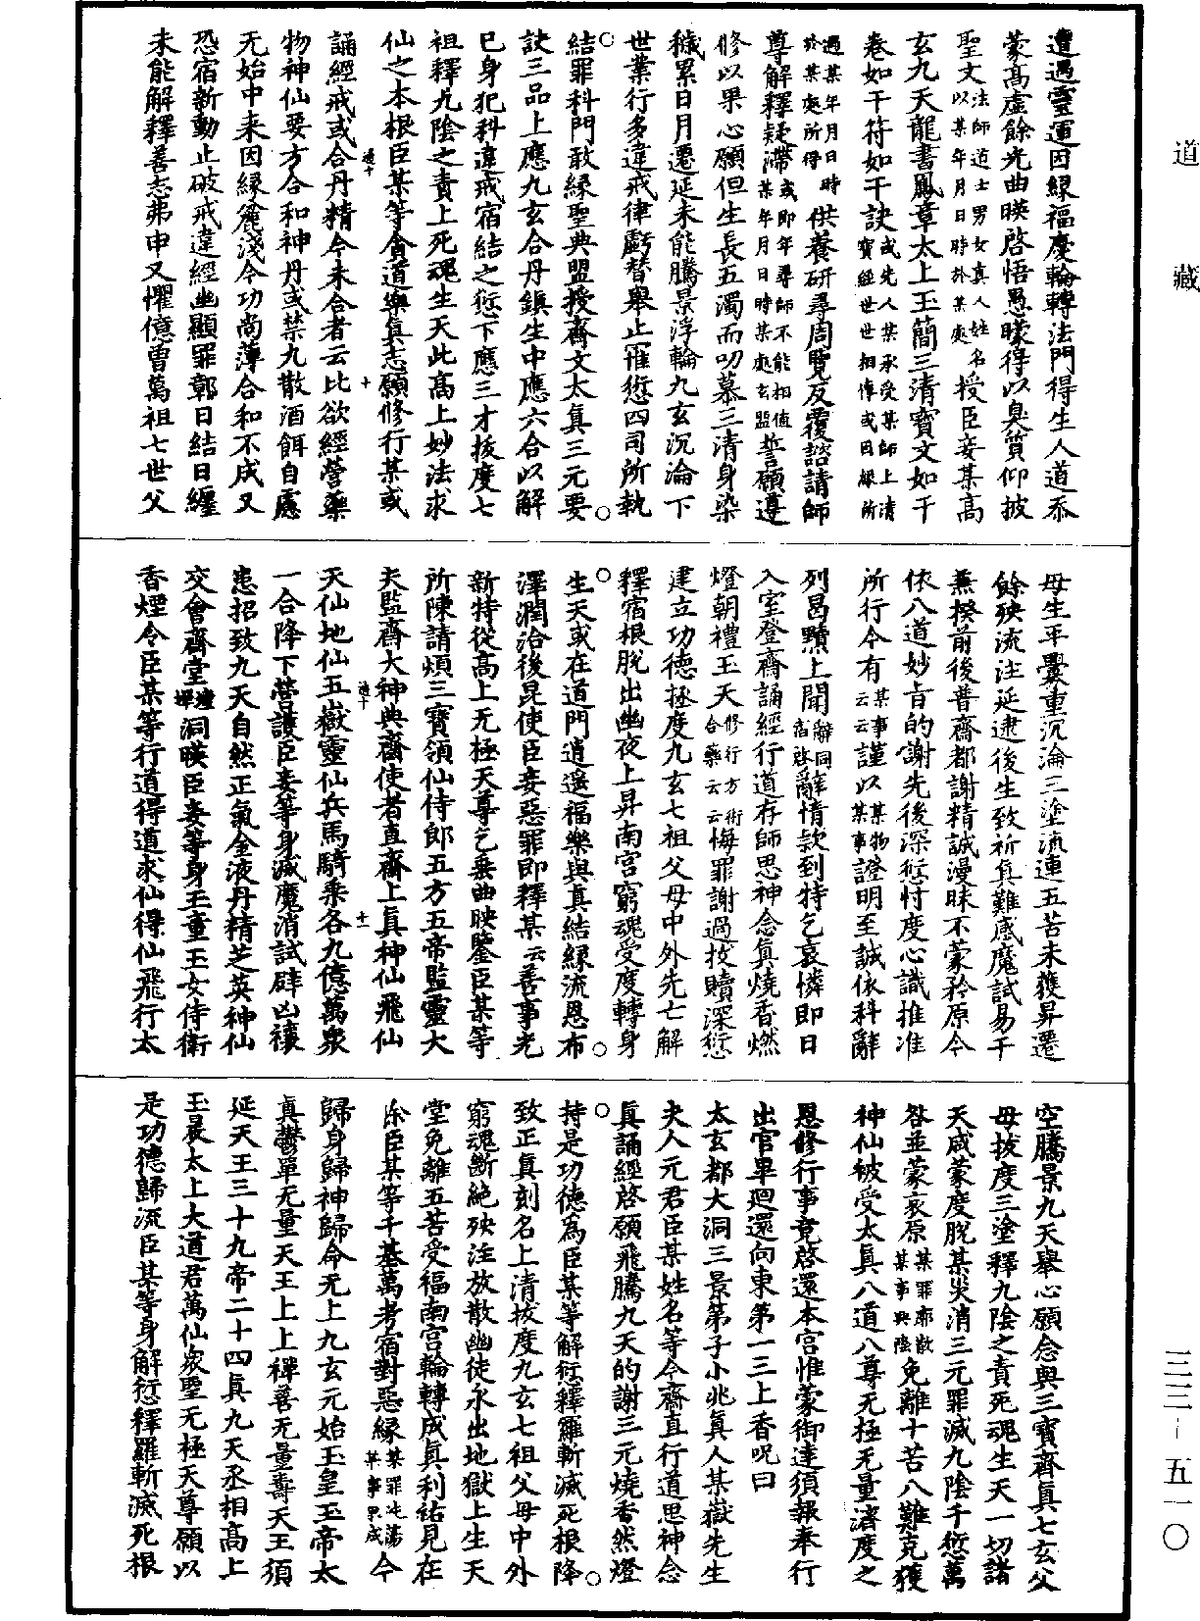 遭遇靈運因緣福慶輪轉法門得生人道忝
蒙高虛餘光曲暎啓悟愚矇得以臭質仰披
聖文以某年月日時於某處法師道士男女真人姓名授臣妾某高
玄九天龍書鳳章太上玉簡三清寶文如干
卷如干符如干訣或先人某承受某師上清寶經世世相傳或因緣所
遇某年月日時於某處所得供養研尋周覽反覆諮請師
尊解釋疑滯或即年尋師不能相值某年月日時某處玄盟誓願遵
修以果心願但生長五濁而叨慕三清身染
穢累日月遷延未能騰景浮輪九玄沉淪下
世業行多違戒律虧替舉止罹愆四司所執
結罪科門敢緣聖典盟授齋文太真三元要
訣三品上應九玄合丹鎮生中應六合以解
巳身犯科違戒宿結之愆下應三才拔度七
祖釋九陰之責上死魂生天此高上妙法求
仙之本根臣某等貪道樂真志願修行某或
誦經戒或合丹精今未合者云比欲經營藥
物神仙要方合和神丹或禁九散酒餌自慮
无始中来因緣麄淺今功尚薄合和不成又
恐宿新動止破戒違經幽顯罪鄣日結日纏
未能解釋善志弗申又懼億曾萬祖七世父
母生平釁重沉淪三塗流連五苦未獲昇遷
餘殃流注延逮後生致祈真難感魔試易干
無揆前後普齋都謝精誠漫昧不蒙矜原今
依八道妙旨的謝先後深愆忖度心識推准
所行今有某事云云謹以某物某事證明至誠依科辭
列曷黷上聞辭同宿啓辭情款到特乞哀憐即日
入室登齋誦經行道存師思神念真燒香燃
燈朝禮玉天修行方術合藥云云悔罪謝過技贖深愆
建立功德拯度九玄七祖父母中外先亡解
釋宿根脫出幽夜上昇南宮窮魂受度轉身
生天或在道門逍遙福樂與真結緣流恩布
澤潤洽後昆使臣妾惡罪即釋某云善事光
新特從高上无極天尊乞垂曲映鑒臣某等
所陳請煩三寶領仙侍郎五方五帝監靈大
夫監齋大神典齋使者直齋上真神仙飛仙
天仙地仙五嶽靈仙兵馬騎乘各九億萬衆
一合降下營護臣妾等身滅魔消試辟凶禳
患招致九天自然正氣金液丹精芝英神仙
交會齋堂壇墠洞暎臣妾等身玉童玉女侍衛
香煙令臣某等行道得道求仙得仙飛行太
空騰景九天舉心願念與三寶齊真七玄父
母拔度三塗釋九陰之責死魂生天一切諸
天咸蒙度脫某災消三元罪滅九陰千愆萬
咎並蒙哀原某罪鄣散某事興隆免離十苦八難克獲
神仙被受太真八道八尊无極无量濟度之
恩修行事竟啓還本宮惟蒙御達須報奉行
出官畢迴還向東第一三上香呪曰
太玄都大洞三景弟子小兆真人某嶽先生
夫人元君臣某姓名等今齋直行道思神念
真誦經啓願飛騰九天的謝三元燒香然燈
持是功德為臣某等解愆釋羅斬滅死根降
致正真刻名上清拔度九玄七祖父母中外
窮魂斷絕殃注放散幽徒永出地獄上生天
堂免離五苦受福南宮輪轉成真利祐見在
除臣某等千基萬考宿對惡緣某罪屯蕩某事果成今
歸身歸神歸命无上九玄元始玉皇玉帝太
真鬱單无量天王上上禪善无量壽天王須
延天王三十九帝二十四真九天丞相高上
玉晨太上大道君萬仙衆聖无極天尊願以
是功德歸流臣某等身解愆釋羅斬滅死根
道藏
三三—五一〇